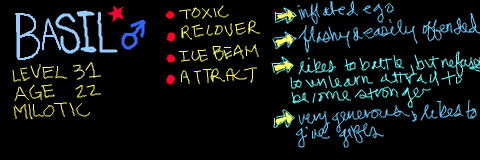 BASIL
LEVEL 31
AGE 22
MILOTIC
TOXIC
RECOVER
ICE BEAM
ATTRACT
inflated ego
flashy & easily offended
likes to battle, but refuses
to unlearn attract to
become stronger
very generous, likes to
give gifts